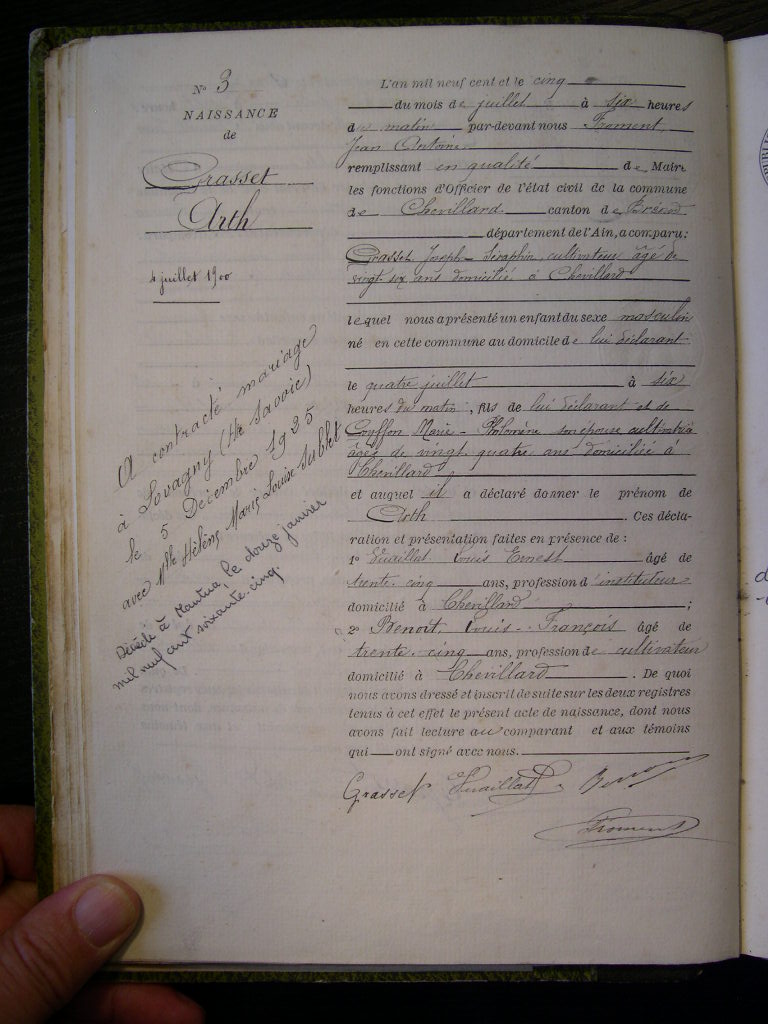 N° 3
NAISSANCE
de
Grasset
Arth
4 juillet 1900
A contracté mariage
à Lovagny (Hte Savoie)
le 5 Décembre 1935
avec Mlle Hélène Marie Louise Sublet
Décédé à Nantua le douze janvier
mil neuf cent soixante-cinq.
L'an mil neuf cent et le cinq
du mois de juillet à six heures
du matin par-devant nous Froment,
Jean Antoine
remplissant en qualité de Maire
les fonctions d'Officier de l'état civil de la commune
de Chevillard canton de Brénod
département de l'Ain, a comparu:
Grasset Joseph-Séraphin, cultivateur âgé de
vingt six ans domicilié à Chevillard
lequel nous a présenté un enfant du sexe masculin
né en cette commune au domicile de lui déclarant
le quatre juillet à six
heures du matin, fils de lui déclarant et de
Gouffon Marie-Philomène son épouse cultivatrice
âgée de vingt quatre ans domiciliée à
Chevillard
et auquel il a déclaré donner le prénom de
Arth. Ces décla-
ration et présentation faites en présence de:
1° Vuaillat Louis Ernest âgé de
trente-cinq ans, profession d'instituteur
domicilié à Chevillard;
2° Benoit, Louis-François âgé de
trente-cinq ans, profession de cultivateur
domicilié à Chevillard. De quoi
nous avons dressé et inscrit de suite sur les deux registres
tenus à cet effet le présent acte de naissance, dont nous
avons fait lecture au comparant et aux témoins
qui ont signé avec nous.
Grasset Vuaillat Benoit
Froment